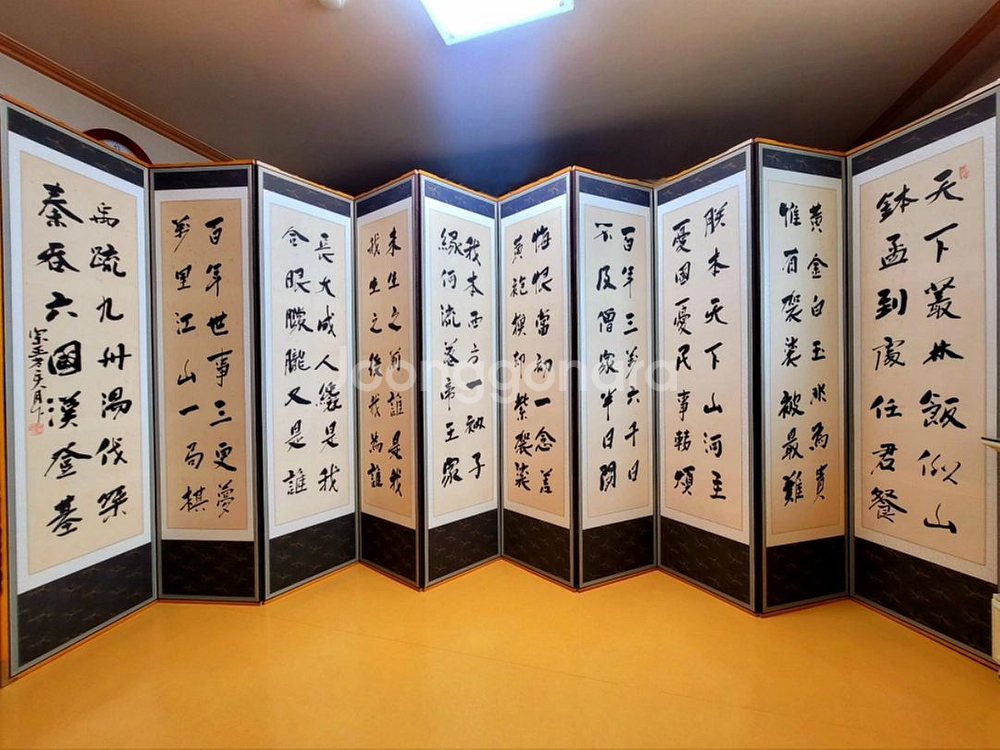 天下叢林飯似山
鉢盂到處任君餐
黃金白玉非爲貴
惟有袈裟被最難
朕本天下山河主
憂國憂民事轉煩
百年三萬六千日
不及僧家半日閒
悔恨當初一念差
黃袍換却紫袈裟
我本西方一衲子
緣何流落帝王家
未生之前誰是我
我生之後我為誰
長大成人纔是我
合眼朦朧又是誰
百年世事三更夢
萬里江山一局棋
禹疏九州湯伐桀
秦呑六國漢登基
Joonggonara